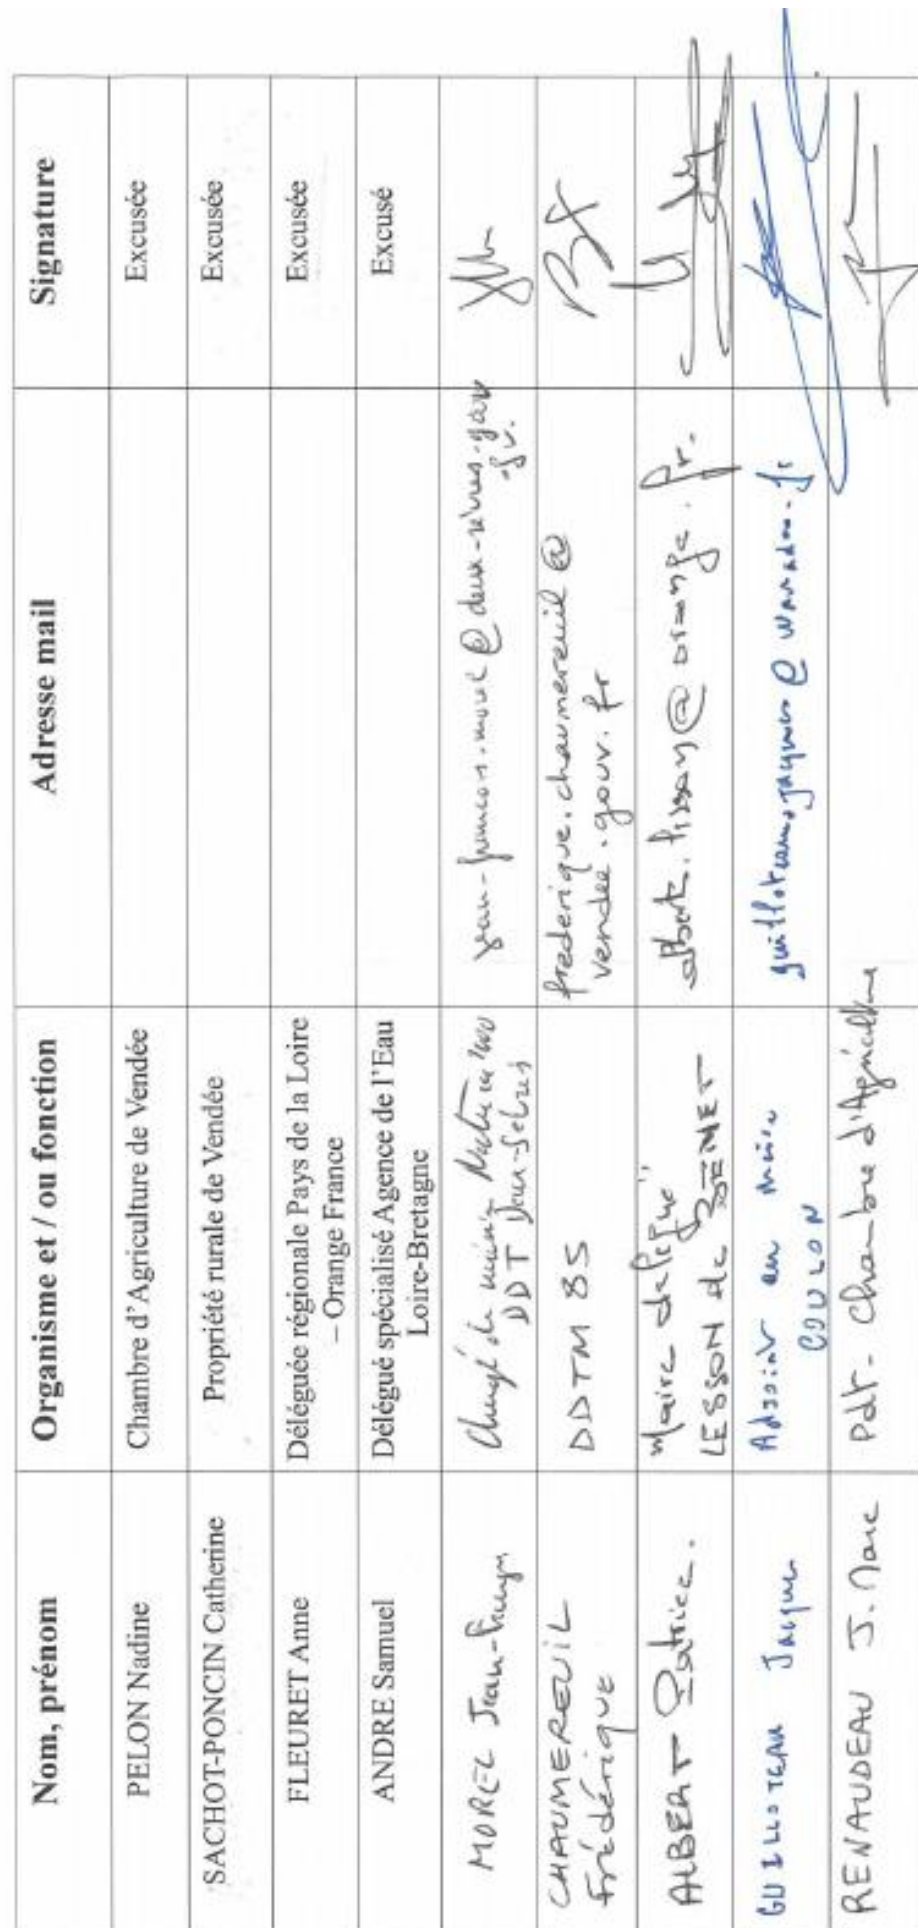 Nom, prénom
Organisme et / ou fonction
Adresse mail
Signature
PELON Nadine
Chambre d'Agriculture de Vendée
Excusée
SACHOT-PONCIN Catherine
Propriété rurale de Vendée
Excusée
FLEURET Anne
Déléguée régionale Pays de la Loire
– Orange France
Excusée
ANDRE Samuel
Délégué spécialisé Agence de l'Eau
Loire-Bretagne
Excusé
MOREL Jean-François
Chargé de mission Natura 2000
DDT Deux-Sèvres
jean-francois.morel@deux-sevres.gouv
.fr.
CHAUMEREUIL
Frédérique
DDTM 85
frederique.chaumereuil@
vendee.gouv.fr
ALBERT Patrice.
Maire délégué
LESSON de BENET
@orange.fr.
GUILLOTEAU Jacques
Adjoint au maire
COULON
guilloteau.jacques@wanadoo.fr
RENAUDEAU J. Marc
Pdt. Chambre d'Agriculture